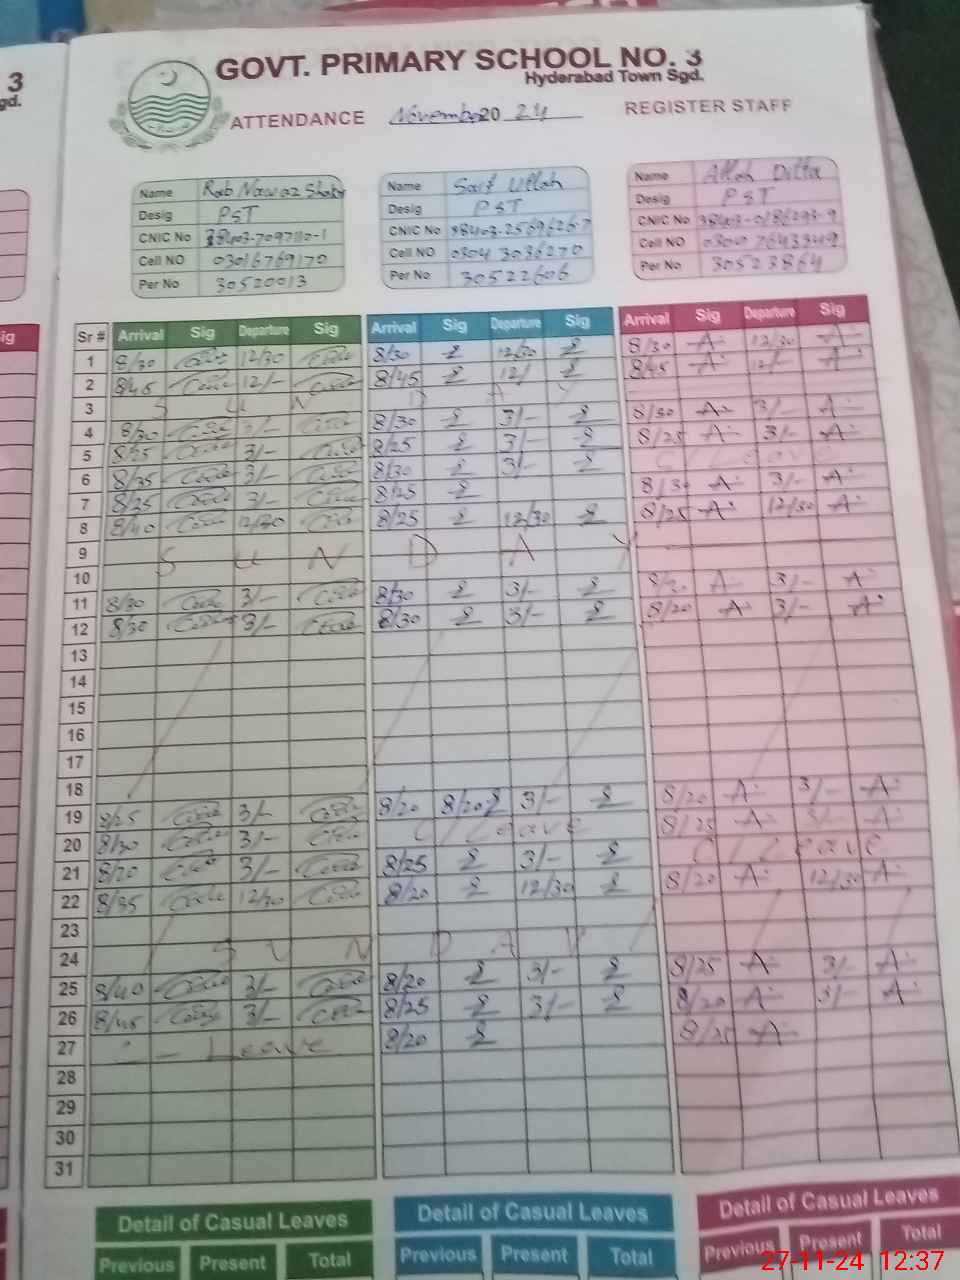 3
gd.
GOVT. PRIMARY SCHOOL NO. 3
Hyderabad Town Sgd.
ATTENDANCE November 20 24 REGISTER STAFF
Name Rab Nawaz
Desig PST
CNIC No 38403-7097110-1
Cell NO 03016769170
Per No 30520013
Name Saif Ullah
Desig PST
CNIC No 38403-2569626-7
Cell NO 0304 3036270
Per No 30522606
Name Allah Ditta
Desig PST
CNIC No 38403-0186293-9
Cell NO 0300 7643349
Per No 30523864
ig
Sr # Arrival Sig Departure Sig Arrival Sig Departure Sig Arrival Sig Departure Sig
1 8/30 12/30 8/30 12/30 8/30 A 12/30 A
2 8/45 12/- 8/45 12/ 8/45 A 12/- A
3 S U N D A Y
4 8/30 3/- 8/30 3/- 8/30 A 3/- A
5 8/25 3/- 8/25 3/- 8/25 A 3/- A
6 8/35 3/- 8/30 3/- C/Leave
7 8/25 3/- 8/25 8/30 A 3/- A
8 8/40 12/30 8/25 12/30 8/25 A 12/30 A
9
10 S U N D A Y
11 8/30 3/- 8/30 3/- A 3/- A
12 8/30 3/- 8/30 3/- 8/20 A 3/- A
13
14
15
16
17
18
19 8/25 3/- 8/20 8/20 3/- 8/20 A 3/- A
20 8/30 3/- C/Leave 8/25 A 3/- A
21 8/20 3/- 8/25 3/- C/Leave
22 8/35 12/30 8/20 12/30 8/20 A 12/30 A
23
24 S U N D A Y
25 8/40 3/- 8/20 3/- 8/25 A 3/- A
26 8/45 3/- 8/25 3/- 8/20 A 3/- A
27 Leave 8/20 8/25 A
28
29
30
31
Detail of Casual Leaves Detail of Casual Leaves Detail of Casual Leaves
Previous Present Total Previous Present Total Previous Present Total
27-11-24 12:37